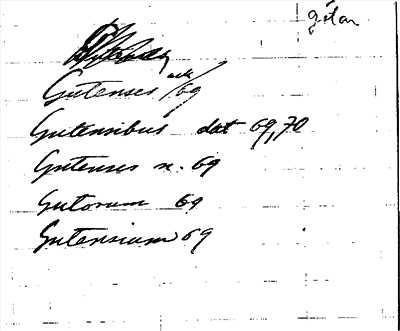 götar
Gutenses ack/69
Gutensibus dat 69,70
Gutenses n. 69
Gutorum 69
Gutensium 69